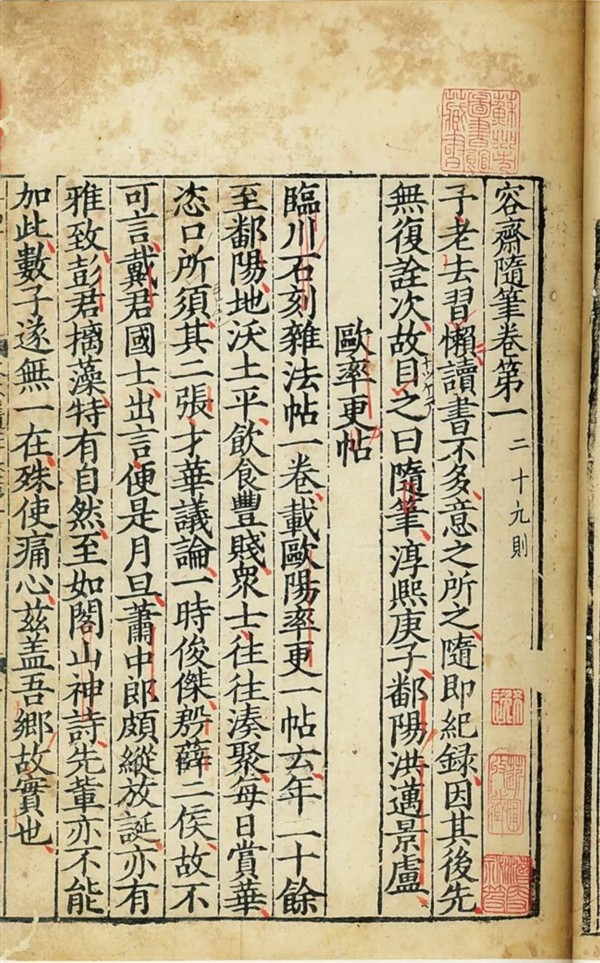 容齋隨筆卷第一 二十九則
予老去習懶讀書不多意之所之隨即紀録因其後先
無復詮次故目之曰隨筆淳熙庚子鄱陽洪邁景盧
歐率更帖
臨川石刻雜法帖一卷載歐陽率更一帖云年二十餘
至鄱陽地沃土平飲食豐賤衆士往往湊聚每日賞華
恣口所須其二張才華議論一時俊傑殷薛二侯故不
可言戴君國士出言便是月旦蕭中郎頗縱放誕亦有
雅致彭君摛藻特有自然至如閣山神詩先輩亦不能
加此數子遂無一在殊使痛心兹盖吾鄉故實也
蘇州圖書館藏書